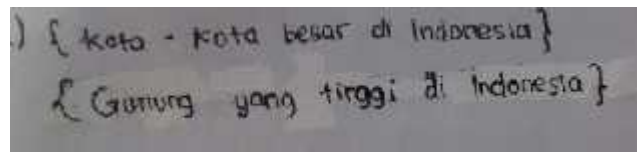 .) { kota - kota besar di Indonesia}
{ Gunung yang tinggi di Indonesia}